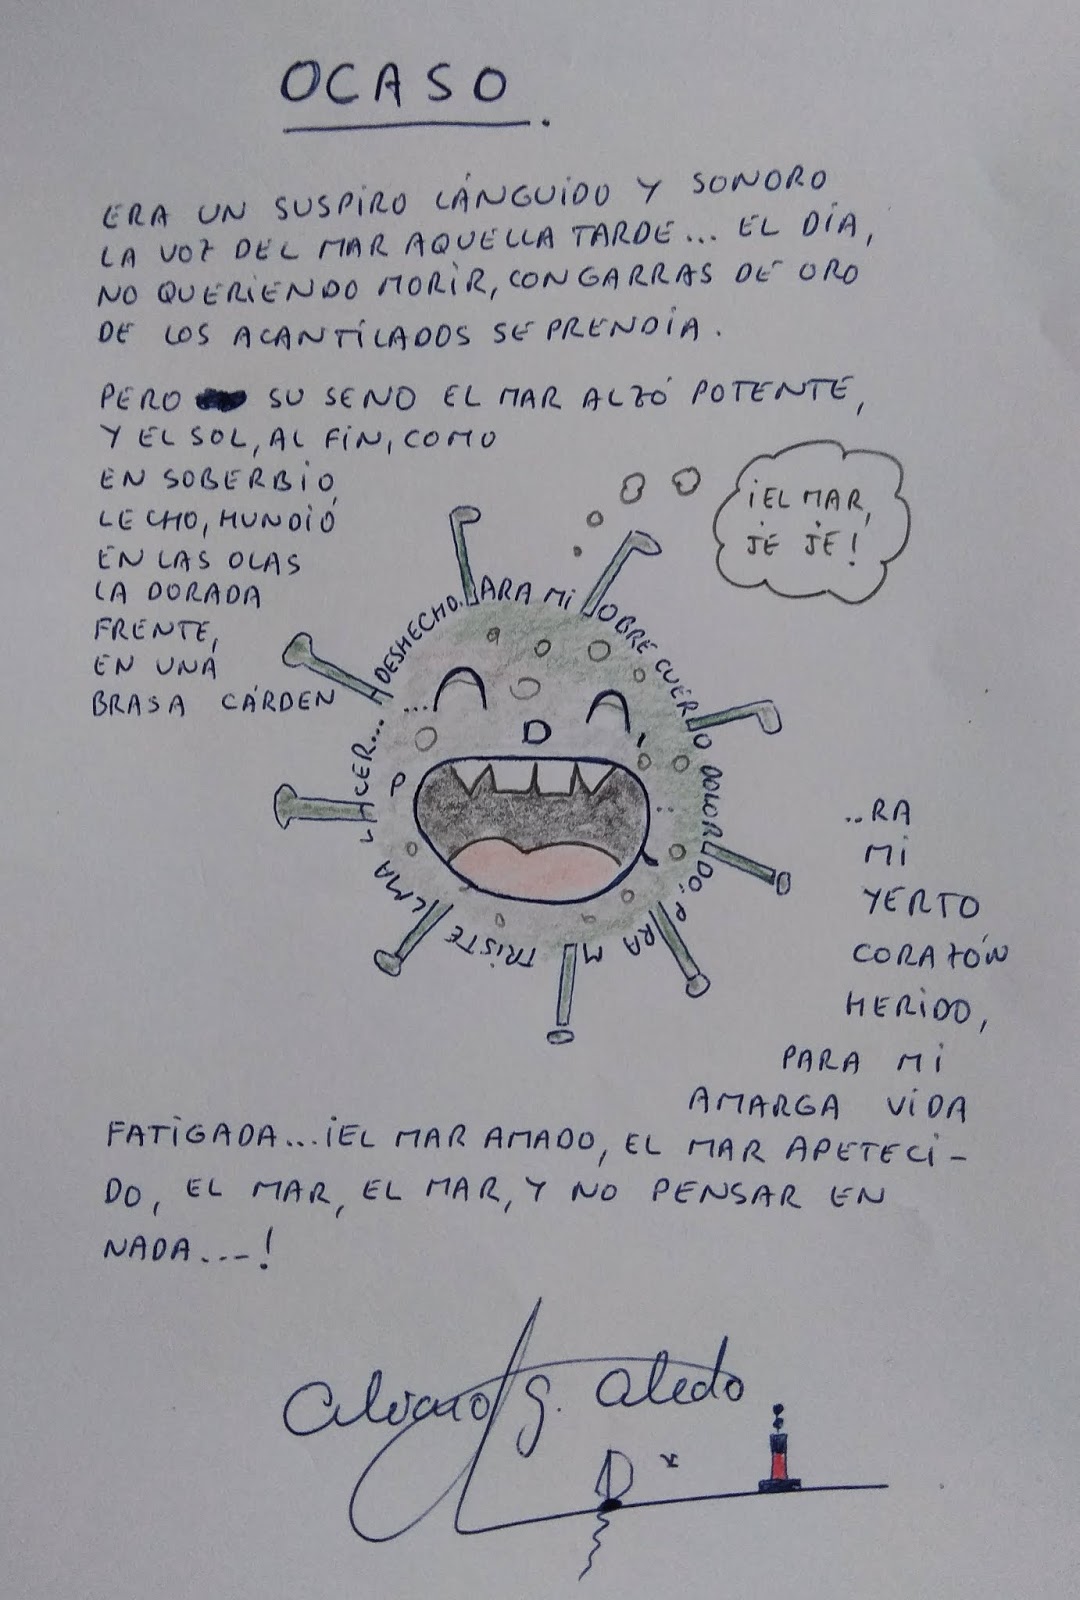 OCASO.
ERA UN SUSPIRO LÁNGUIDO Y SONORO
LA VOZ DEL MAR AQUELLA TARDE... EL DÍA,
NO QUERIENDO MORIR, CON GARRAS DE ORO
DE LOS ACANTILADOS SE PRENDIA.
PERO SU SENO EL MAR ALZÓ POTENTE,
Y EL SOL, AL FIN, COMO
EN SOBERBIO
LECHO, HUNDIÓ
EN LAS OLAS
LA DORADA
FRENTE,
EN UNA
BRASA CÁRDEN
¡EL MAR,
JE JE!
DESHECHO. PARA MI POBRE CUERPO DOLORIDO, PARA MI TRISTE ALMA LACER...
... D ,
P
..RA
MI
YERTO
CORAZÓN
HERIDO,
PARA MI
AMARGA VIDA
FATIGADA...¡EL MAR AMADO, EL MAR APETECI-
DO, EL MAR, EL MAR, Y NO PENSAR EN
NADA...!
Alvaro G. Aledo